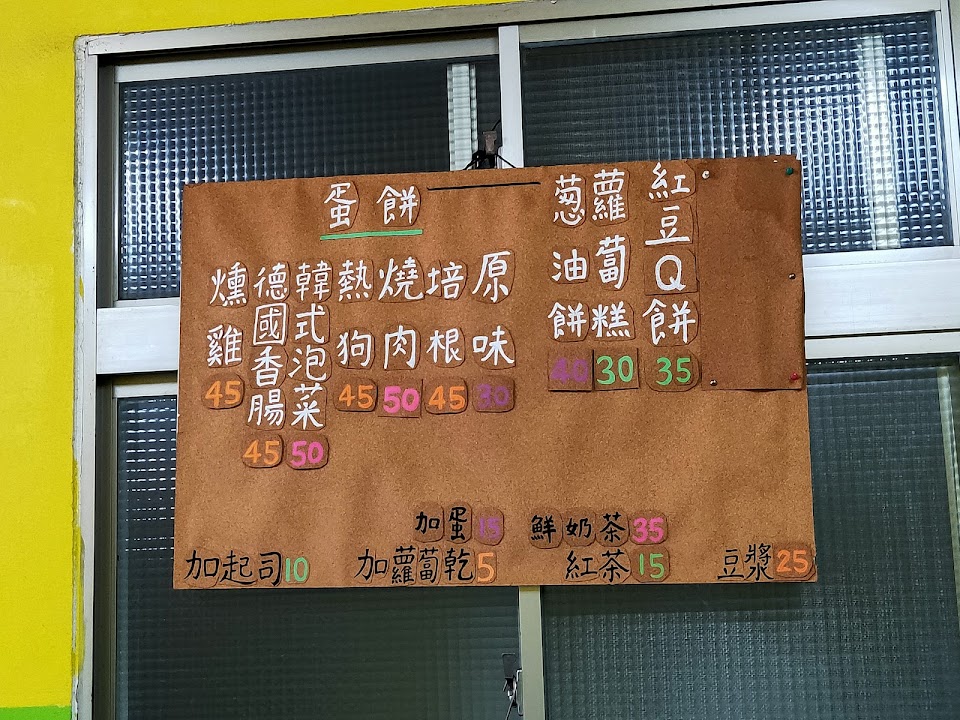 紅豆Q餅 35
蘿蔔糕 30
葱油餅 40
蛋餅
原味 30
培根 45
燒肉 50
熱狗 45
韓式泡菜 50
德國香腸 45
燻雞 45
加蛋 15
鮮奶茶 35
加起司 10
加蘿蔔乾 5
紅茶 15
豆漿 25